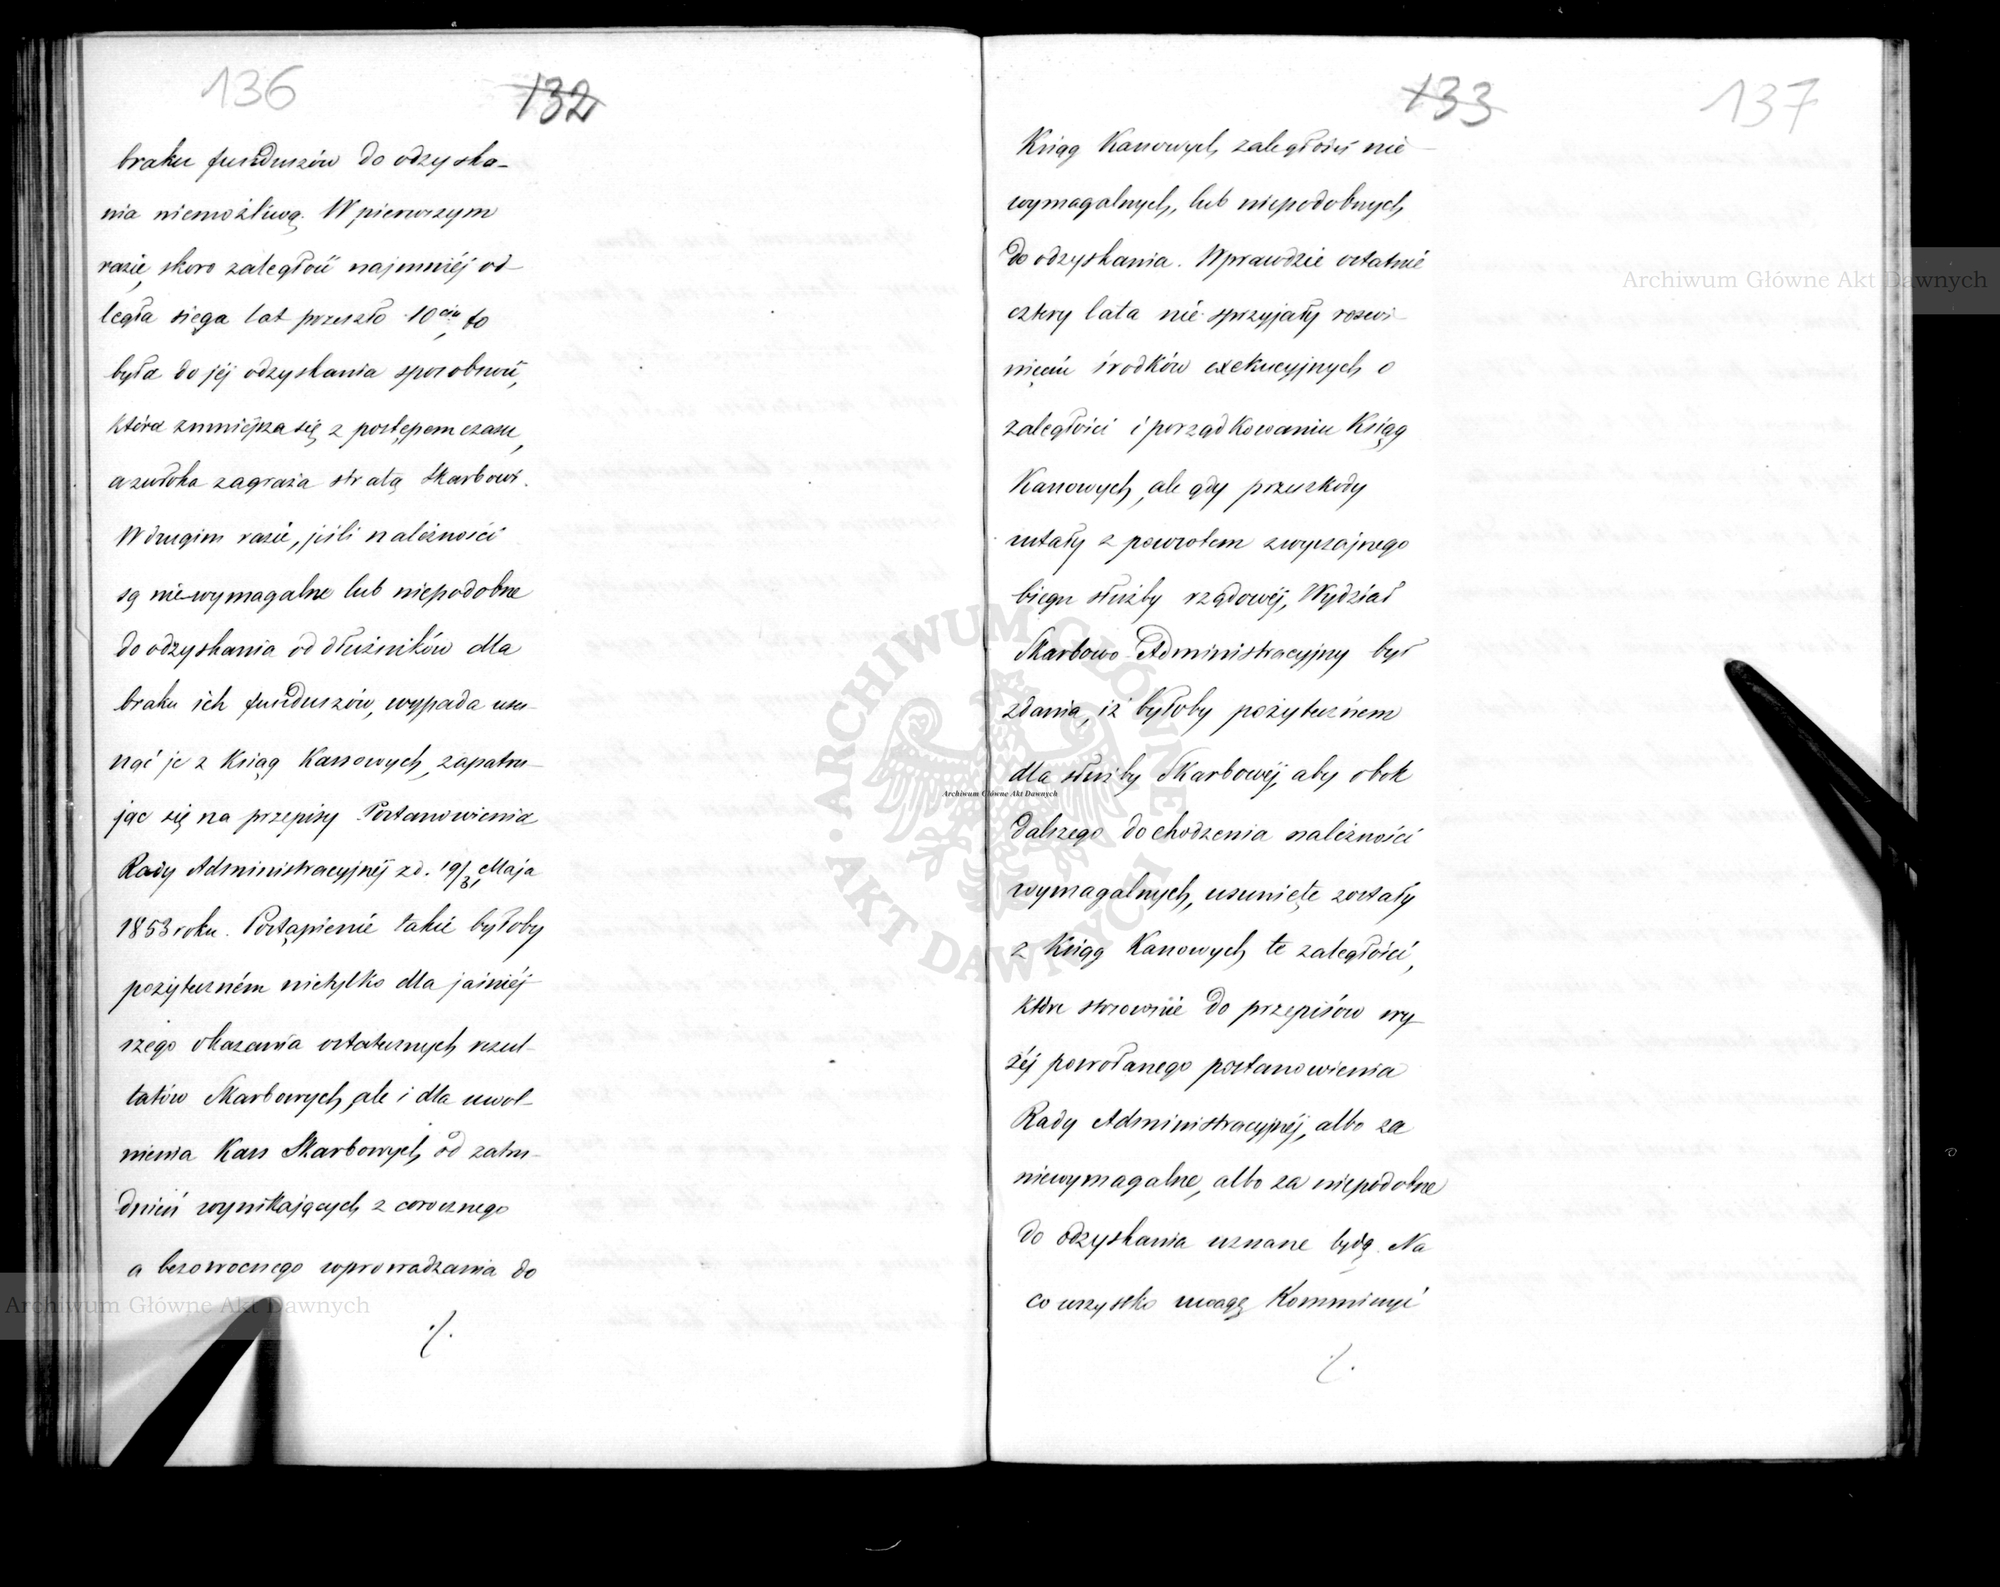 136
132
braku funduszów do odzyska-
nia niemożliwą. W pierwszym
razie, skoro zaległość najmniéj od-
legła sięga lat przeszło 10ciu, to
była do jéj odzyskania sposobność,
która zmniejsza się z postępem czasu,
a zwłoka zagraża stratą Skarbowi.
W drugim razie, jeśli należności
są niewymagalne lub niepodobne
do odzyskania od dłużników dla
braku ich funduszów, wypada usu-
nąć je z Ksiąg Kassowych, zapatru-
jąc się na przepisy Postanowienia
Rady Administracyjnéj z d. 19/31 Maja
1853 roku. Postąpienie takie byłoby
pożyteczném nietylko dla jaśniéj-
szego okazania ostatecznych rezul-
tatów Skarbowych, ale i dla uwol-
nienia Kass Skarbowych, od zatru-
dnień wynikających z corocznego
a bezowocnego wprowadzania do
./.
133
137
Ksiąg Kassowych, zaległości nie-
wymagalnych, lub niepodobnych
do odzyskania. Wprawdzie ostatnie
cztery lata nie sprzyjały rozwi-
nięciu środków exekucyjnych o
zaległości i porządkowaniu Ksiąg
Kassowych, ale gdy przeszkody
ustały z powrotem zwyczajnego
biegu służby rządowéj, Wydział
Skarbowo-Administracyjny był
zdania, iż byłoby pożytecznem
dla służby Skarbowéj, aby obok
dalszego dochodzenia należności
wymagalnych, usunięte zostały
z Ksiąg Kassowych te zaległości,
które stosownie do przepisów wy-
żéj powołanego postanowienia
Rady Administracyjnéj, albo za
niewymagalne, albo za niepodobne
do odzyskania uznane będą. Na
co wszystko uwagę Kommissyi
./.
Archiwum Główne Akt Dawnych
Archiwum Główne Akt Dawnych
Archiwum Główne Akt Dawnych
ARCHIWUM GŁÓWNE AKT DAWNYCH